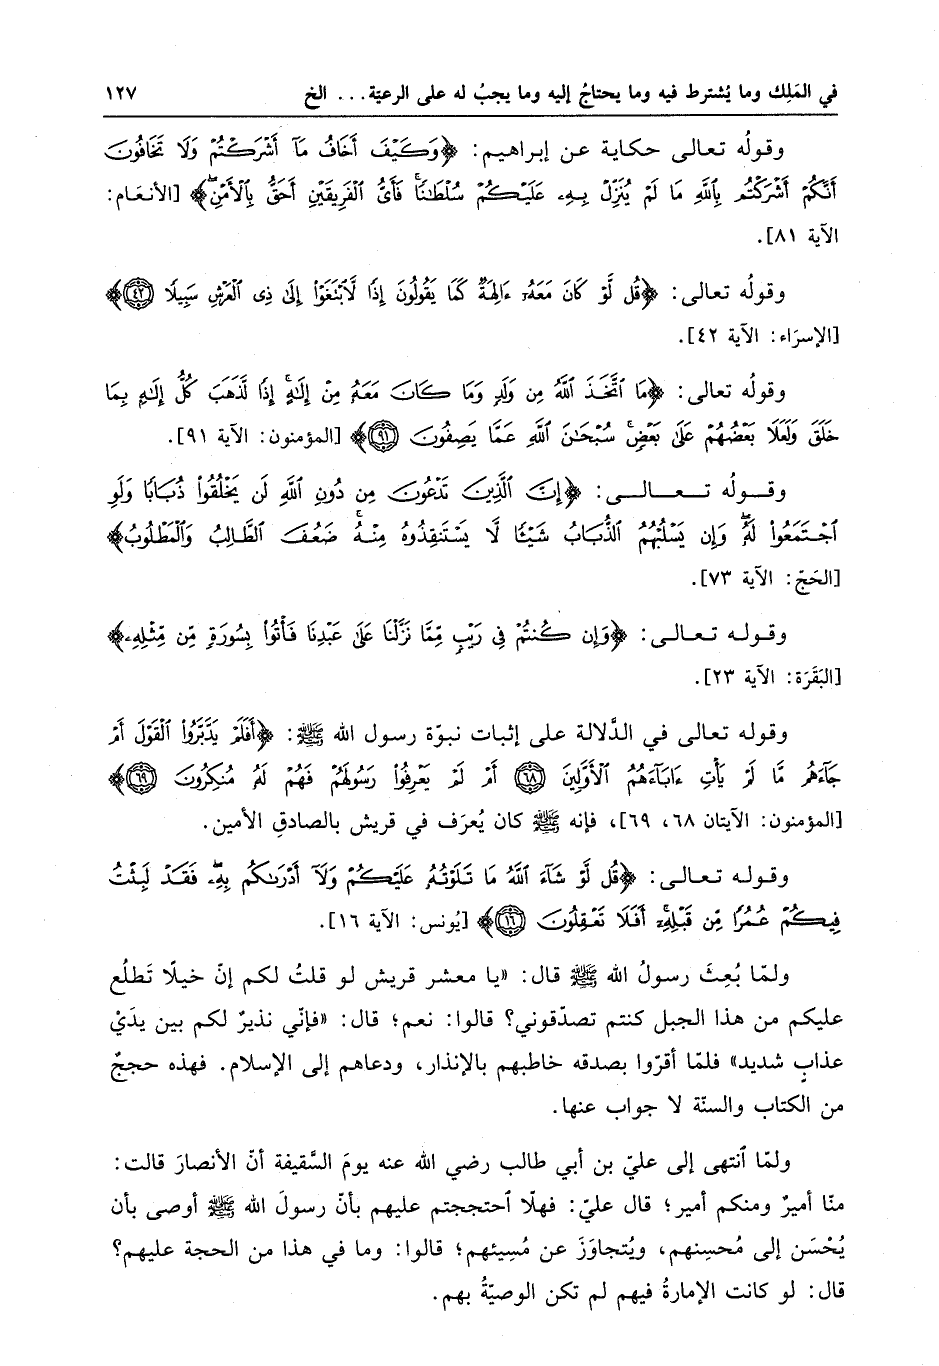 في المَلِك وما يُشترط فيه وما يحتاجُ إليه وما يجبُ له على الرعيّة... الخ ١٢٧
وقولُه تعالى حكاية عن إبراهيم: ﴿وَكَيْفَ أَخَافُ مَآ أَشْرَكْتُمْ وَلَا تَخَافُونَ
أَنَّكُمْ أَشْرَكْتُم بِٱللَّهِ مَا لَمْ يُنَزِّلْ بِهِۦ عَلَيْكُمْ سُلْطَٰنًا ۚ فَأَىُّ ٱلْفَرِيقَيْنِ أَحَقُّ بِٱلْأَمْنِ ۖ﴾ [الأنعَام:
الآية ٨١].
وقولُه تعالى: ﴿قُل لَّوْ كَانَ مَعَهُۥٓ ءَالِهَةٌ كَمَا يَقُولُونَ إِذًا لَّٱبْتَغَوْا۟ إِلَىٰ ذِى ٱلْعَرْشِ سَبِيلًا ٤٢﴾
[الإسرَاء: الآية ٤٢].
وقولُه تعالى: ﴿مَا ٱتَّخَذَ ٱللَّهُ مِن وَلَدٍ وَمَا كَانَ مَعَهُۥ مِنْ إِلَٰهٍ ۚ إِذًا لَّذَهَبَ كُلُّ إِلَٰهٍۭ بِمَا
خَلَقَ وَلَعَلَا بَعْضُهُمْ عَلَىٰ بَعْضٍ ۚ سُبْحَٰنَ ٱللَّهِ عَمَّا يَصِفُونَ ٩١﴾ [المؤمنون: الآية ٩١].
وقولُه تعالى: ﴿إِنَّ ٱلَّذِينَ تَدْعُونَ مِن دُونِ ٱللَّهِ لَن يَخْلُقُوا۟ ذُبَابًا وَلَوِ
ٱجْتَمَعُوا۟ لَهُۥ ۖ وَإِن يَسْلُبْهُمُ ٱلذُّبَابُ شَيْـًٔا لَّا يَسْتَنقِذُوهُ مِنْهُ ۚ ضَعُفَ ٱلطَّالِبُ وَٱلْمَطْلُوبُ﴾
[الحَجّ: الآية ٧٣].
وقوله تعالى: ﴿وَإِن كُنتُمْ فِى رَيْبٍ مِّمَّا نَزَّلْنَا عَلَىٰ عَبْدِنَا فَأْتُوا۟ بِسُورَةٍ مِّن مِّثْلِهِۦ﴾
[البَقَرَة: الآية ٢٣].
وقوله تعالى في الدَّلالة على إثبات نبوّة رسول الله ﷺ: ﴿أَفَلَمْ يَدَّبَّرُوا۟ ٱلْقَوْلَ أَمْ
جَآءَهُم مَّا لَمْ يَأْتِ ءَابَآءَهُمُ ٱلْأَوَّلِينَ ٦٨ أَمْ لَمْ يَعْرِفُوا۟ رَسُولَهُمْ فَهُمْ لَهُۥ مُنكِرُونَ ٦٩﴾
[المؤمنون: الآيتان ٦٨، ٦٩]، فإنه ﷺ كان يُعرَف في قريش بالصادقِ الأمين.
وقوله تعالى: ﴿قُل لَّوْ شَآءَ ٱللَّهُ مَا تَلَوْتُهُۥ عَلَيْكُمْ وَلَآ أَدْرَىٰكُم بِهِۦ ۖ فَقَدْ لَبِثْتُ
فِيكُمْ عُمُرًا مِّن قَبْلِهِۦٓ ۚ أَفَلَا تَعْقِلُونَ ١٦﴾ [يُونس: الآية ١٦].
ولمّا بُعِثَ رسولُ الله ﷺ قال: «يا معشر قريش لو قلتُ لكم إنّ خيلًا تَطلُع
عليكم من هذا الجبل كنتم تصدّقوني؟ قالوا: نعم؛ قال: «فإنّي نذيرٌ لكم بين يدَيْ
عذابٍ شديد» فلمّا أقرّوا بصدقه خاطبهم بالإنذار، ودعاهم إلى الإسلام. فهذه حججٌ
من الكتاب والسنّة لا جواب عنها.
ولمّا ٱنتهى إلى عليّ بن أبي طالب رضي الله عنه يومَ السَّقيفة أنّ الأنصارَ قالت:
منّا أميرٌ ومنكم أمير؛ قال عليّ: فهلّا ٱحتججتم عليهم بأنّ رسولَ الله ﷺ أوصى بأن
يُحْسَن إلى مُحسِنهم، ويُتجاوَزَ عن مُسِيئهم؛ قالوا: وما في هذا من الحجة عليهم؟
قال: لو كانت الإمارةُ فيهم لم تكن الوصيّةُ بهم.